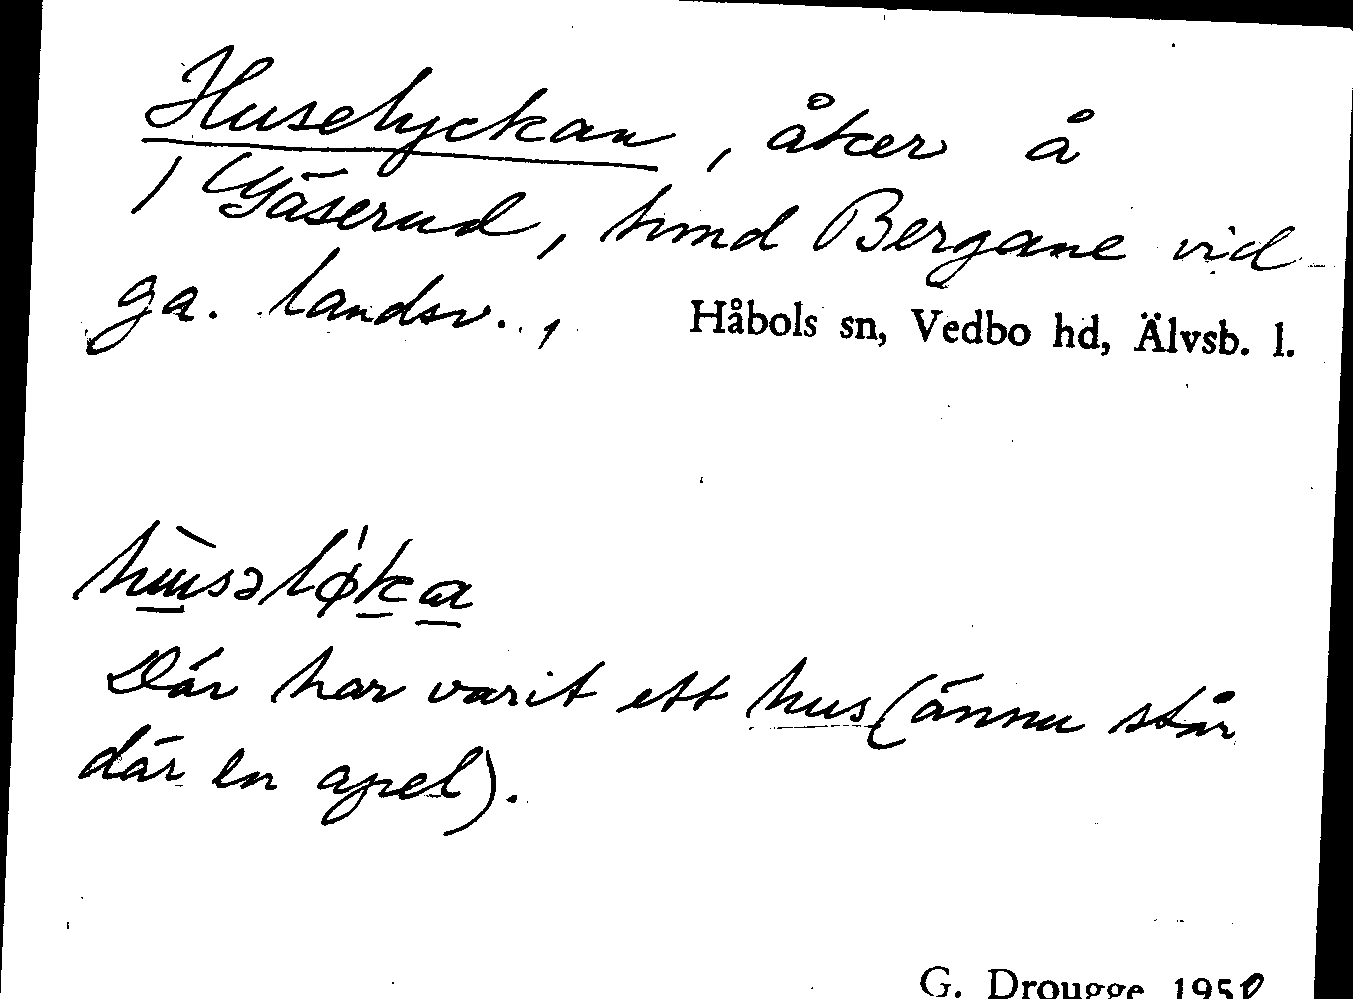 Huselyckan, åker å
1 Gäserud, hmd Bergane vid
ga. landsv.,
Håbols sn, Vedbo hd, Älvsb. l.
Där har varit ett hus (ännu står
där en apel).
G. Drougge 1950